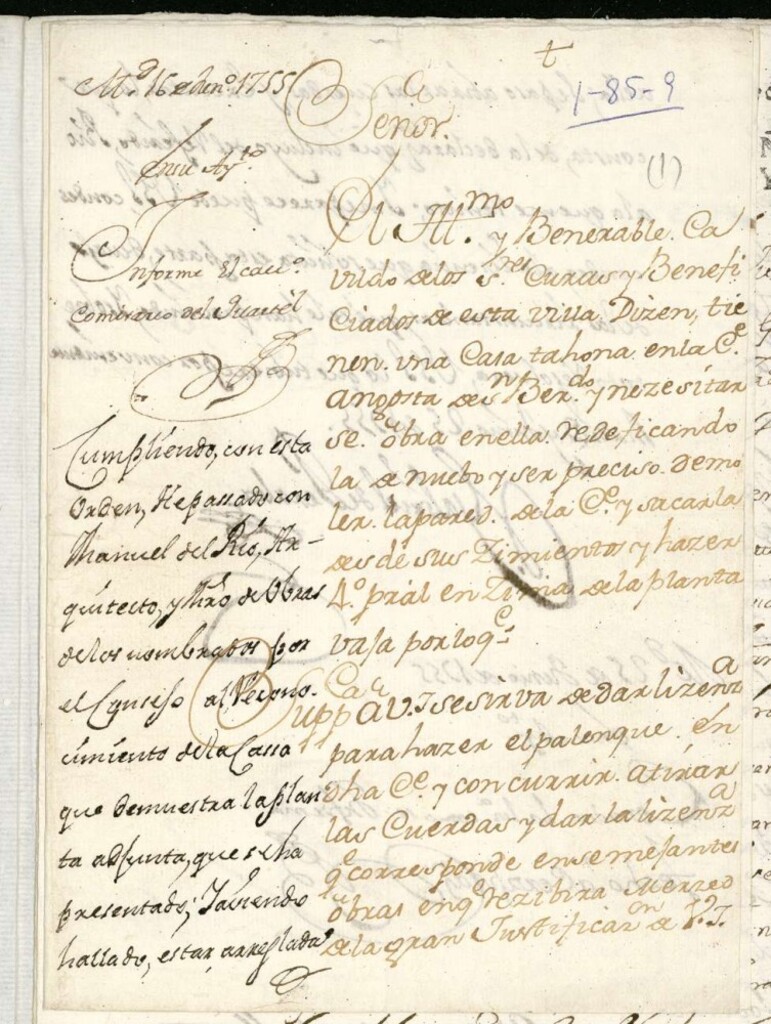 †
1-85-9
(1)
Md. 16 de Heno. 1755
En su Ayto.
Informe El cavo.
Comisario del Quartel
Cumpliendo, con esta
Orden, He passado con
Manuel del Rio, Ar-
quitecto, y Mro. de Obras
de los nombrados por
el Consejo al Recono-
cimiento de la Cassa
que demuestra la plan
ta adjunta, que se ha
presentado; Y aviendo
hallado, estar arreglada
Señor.
El Illmo. y Benerable Ca
vildo de los Sres. Curas y Benefi
ciados de esta villa Dizen, tie
nen una Casa tahona en la Ce.
angosta de Sn. Berdo. y nezesitar
se obra en ella redeficando
la de nuebo y ser preciso demo
ler la pared de la Ce. y sacarla
desde sus Zimientos y hazer
4o. pral en Zima de la planta
vaja por lo qe.
Suppca. a V.I. se sirva de dar lizenza
para hazer el palenque en
dha Ce. y concurrir a tirar
las Cuerdas y dar la lizenza
q corresponde en semejantes
obras en qe. rezibira Merzed
de la gran Justificaon. de V.I.